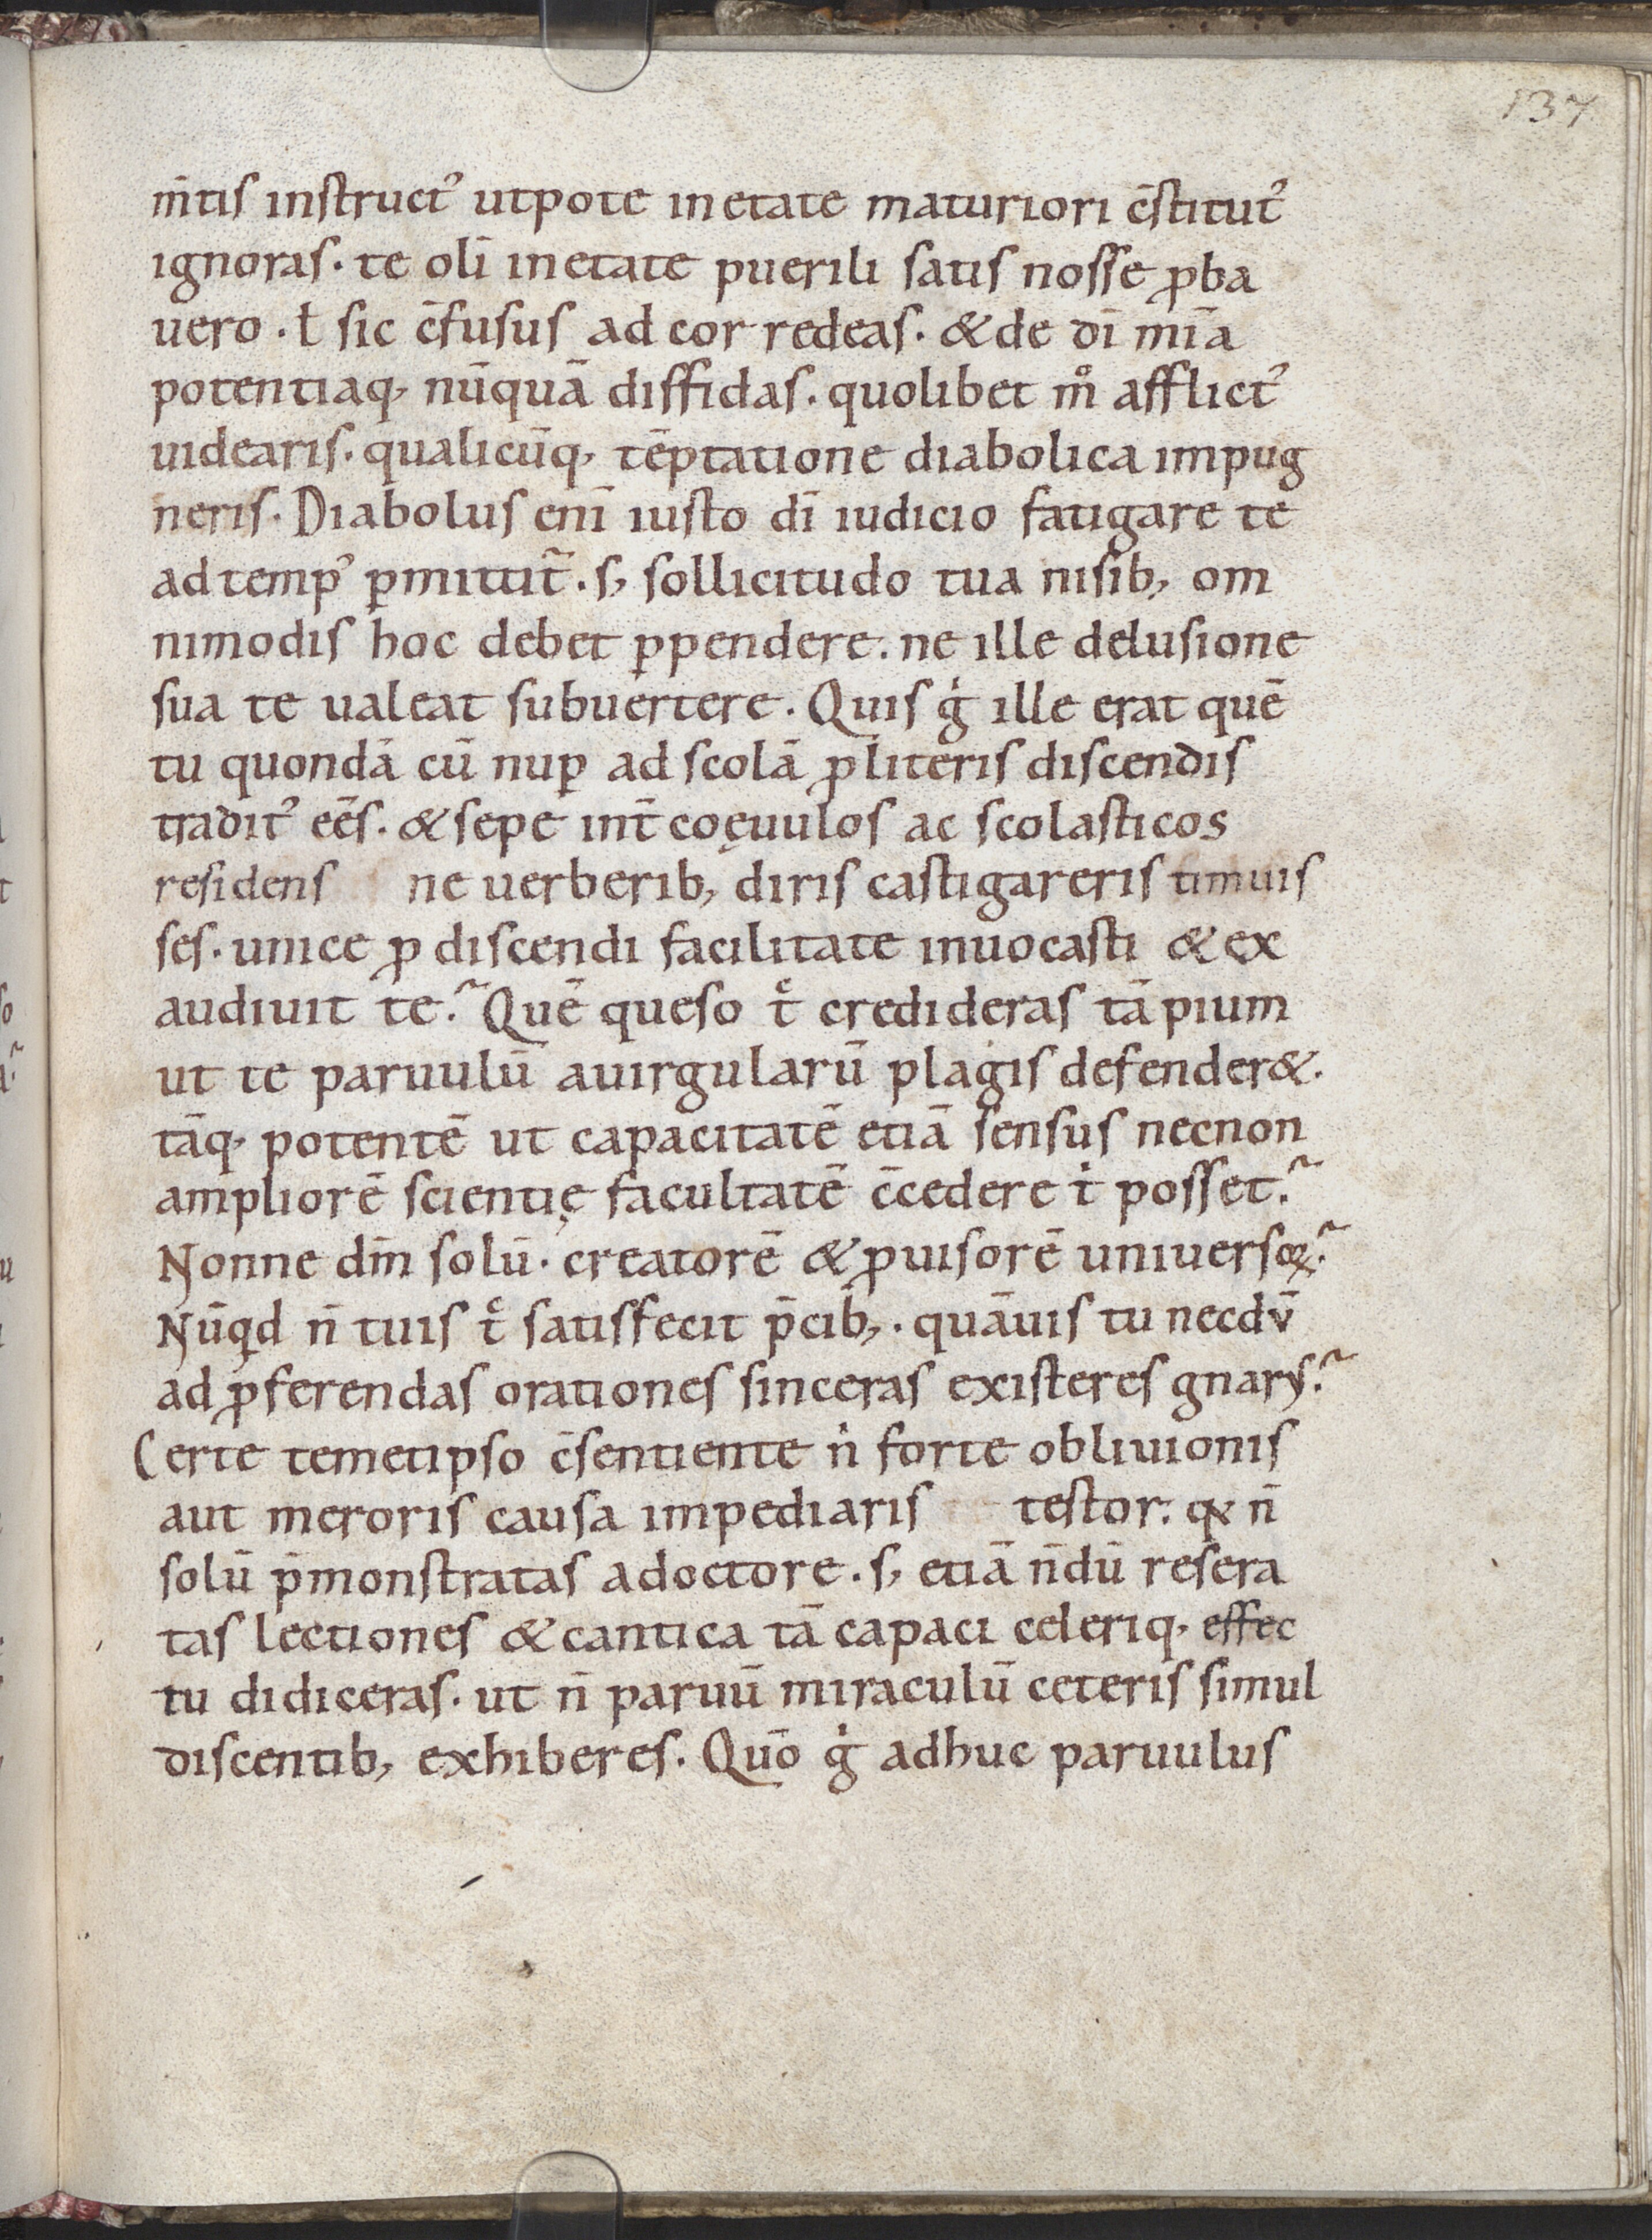 137
m̄tis instruct᾽ utpote in etate maturiori c̄stitut᾽
ignoras. te oli̅ in etate puerili satis nosse ꝓba
uero. ł sic c̄fusus ad cor redeas. & de di̅ mi̅a
potentiaq, nu̅qua̅ diffidas. quolibet m̊ afflict᾽
uidearis. qualicu̅q, te̅ptatione diabolica impug
neris. Diabolus eni̅ iusto di̅ iudicio fatigare te
ad temp᾽ ꝑmittit̃. s, sollicitudo tua nisib, om
nimodis hoc debet ꝑpendere. ne ille delusione
sua te ualeat subuertere. Quis gͥ ille erat que̅
tu quonda̅ cu̅ nuꝑ ad scola̅ ꝓ literis discendis
tradit᾽ ee̅s. & sepe int̅ coęuulos ac scolasticos
residens ne uerberib, diris castigareris timuis
ses. unice ꝓ discendi facilitate inuocasti & ex
audiuit te? Que̅ queso tͨ credideras ta̅ pium
ut te paruulu̅ a uirgularu̅ plagis defender&.
ta̅q, potente̅ ut capacitate̅ etia̅ sensus necnon
ampliore̅ scientię facultate̅ c̄cedere tͥ posset?
Nonne dm̅ solu̅. creatore̅ & ꝓuisore̅ uniuersoꝝ?
Nu̅qͥd n̅ tuis tͨ satisfecit p̅cib,. qua̅uis tu necdu̅
ad ꝓferendas orationes sinceras existeres gnarꝰ?
Certe temetipso c̄sentiente nͥ forte obliuionis
aut meroris causa impediaris testor. qꝫ n̅
solu̅ p̅monstratas a doctore. s, etia̅ n̅du̅ resera
tas lectiones & cantica ta̅ capaci celeriq, effec
tu didiceras. ut n̅ paruu̅ miraculu̅ ceteris simul
discentib, exhiberes. Quo̅ gͥ adhuc paruulus